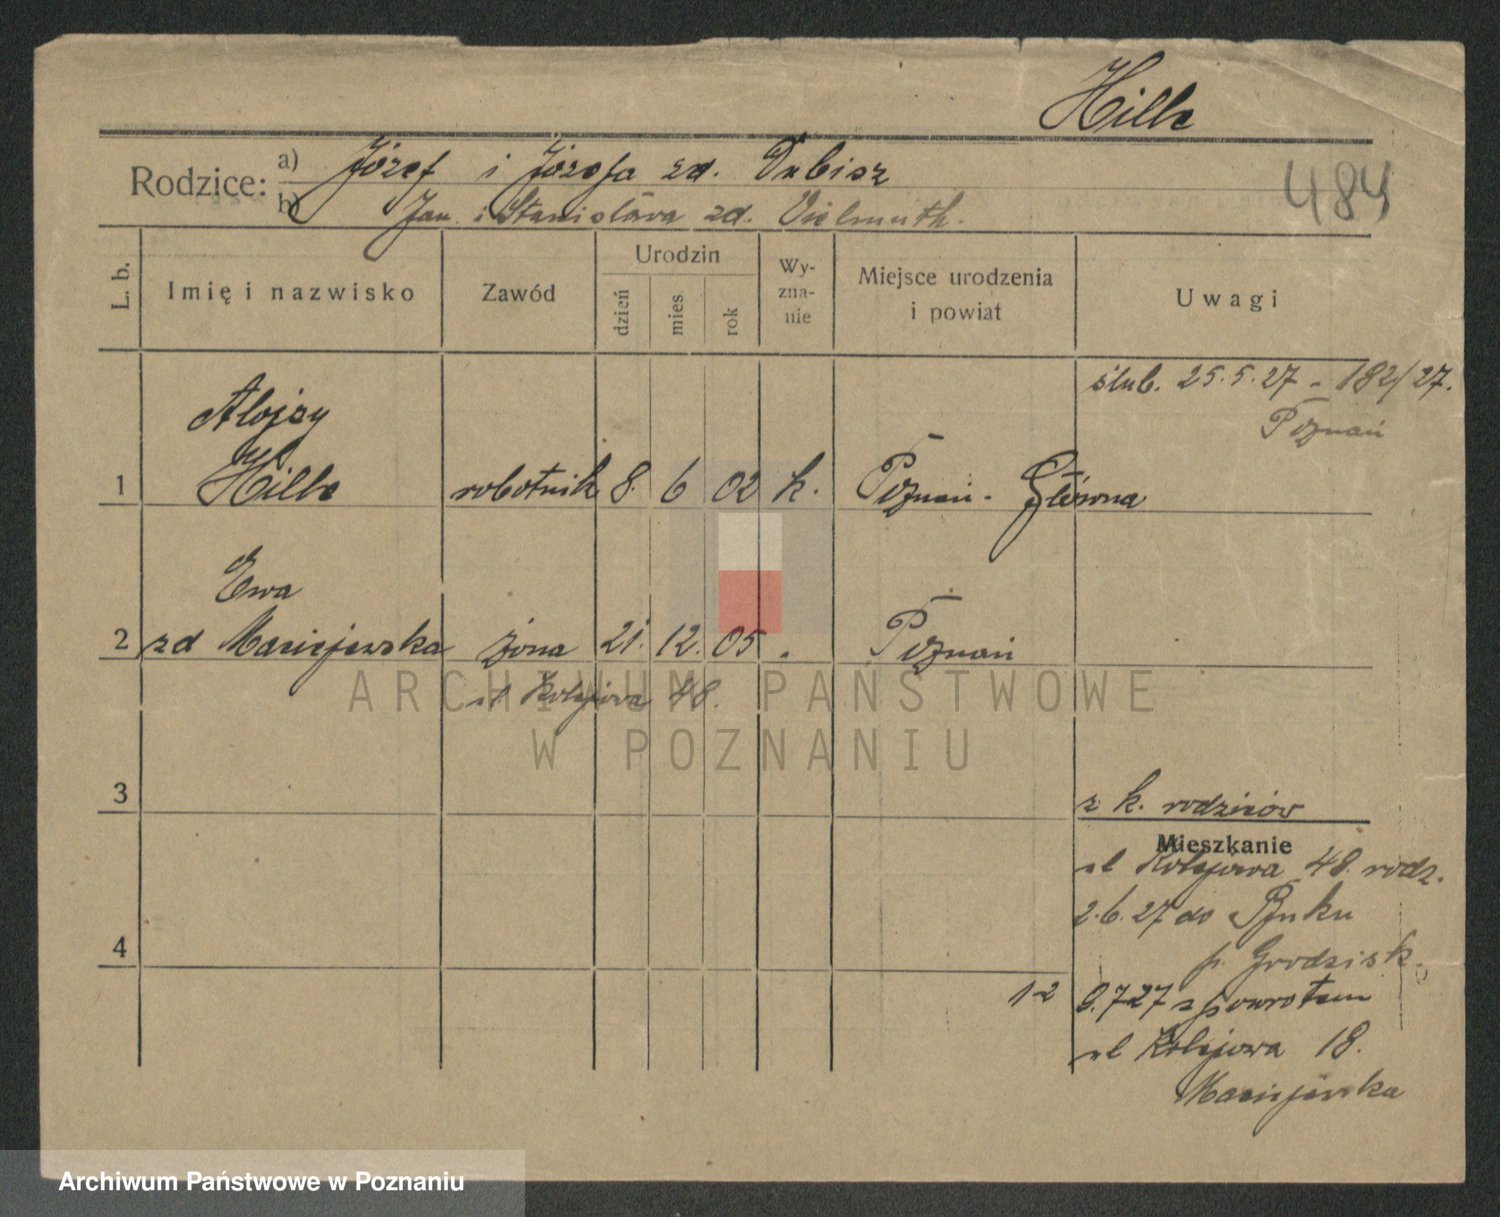 Hille
Rodzice: a) Józef i Józefa zd. Dubisz
484
b) Jan i Stanisława zd. Vielmuth.
L. b.
Imię i nazwisko
Zawód
Urodzin
dzień
mies.
rok
Wy-
zna-
nie
Miejsce urodzenia
i powiat
Uwagi
ślub. 25.5.27 - 182/27.
Poznań
Alojzy
1 Hille robotnik 8. 6 02 k. Poznań - Główna
Ewa
2 zd Maciejewska żona 21. 12. 05 Poznań
ul Kolejowa 48.
ARCHIWUM PAŃSTWOWE
W POZNANIU
3
z k. rodziców
Mieszkanie
ul Kolejowa 48. rodz.
2.6.27 do Buku
p. Grodzisk.
4
12
9.7 27 z powrotem
ul Kolejowa 18.
Maciejewska
Archiwum Państwowe w Poznaniu